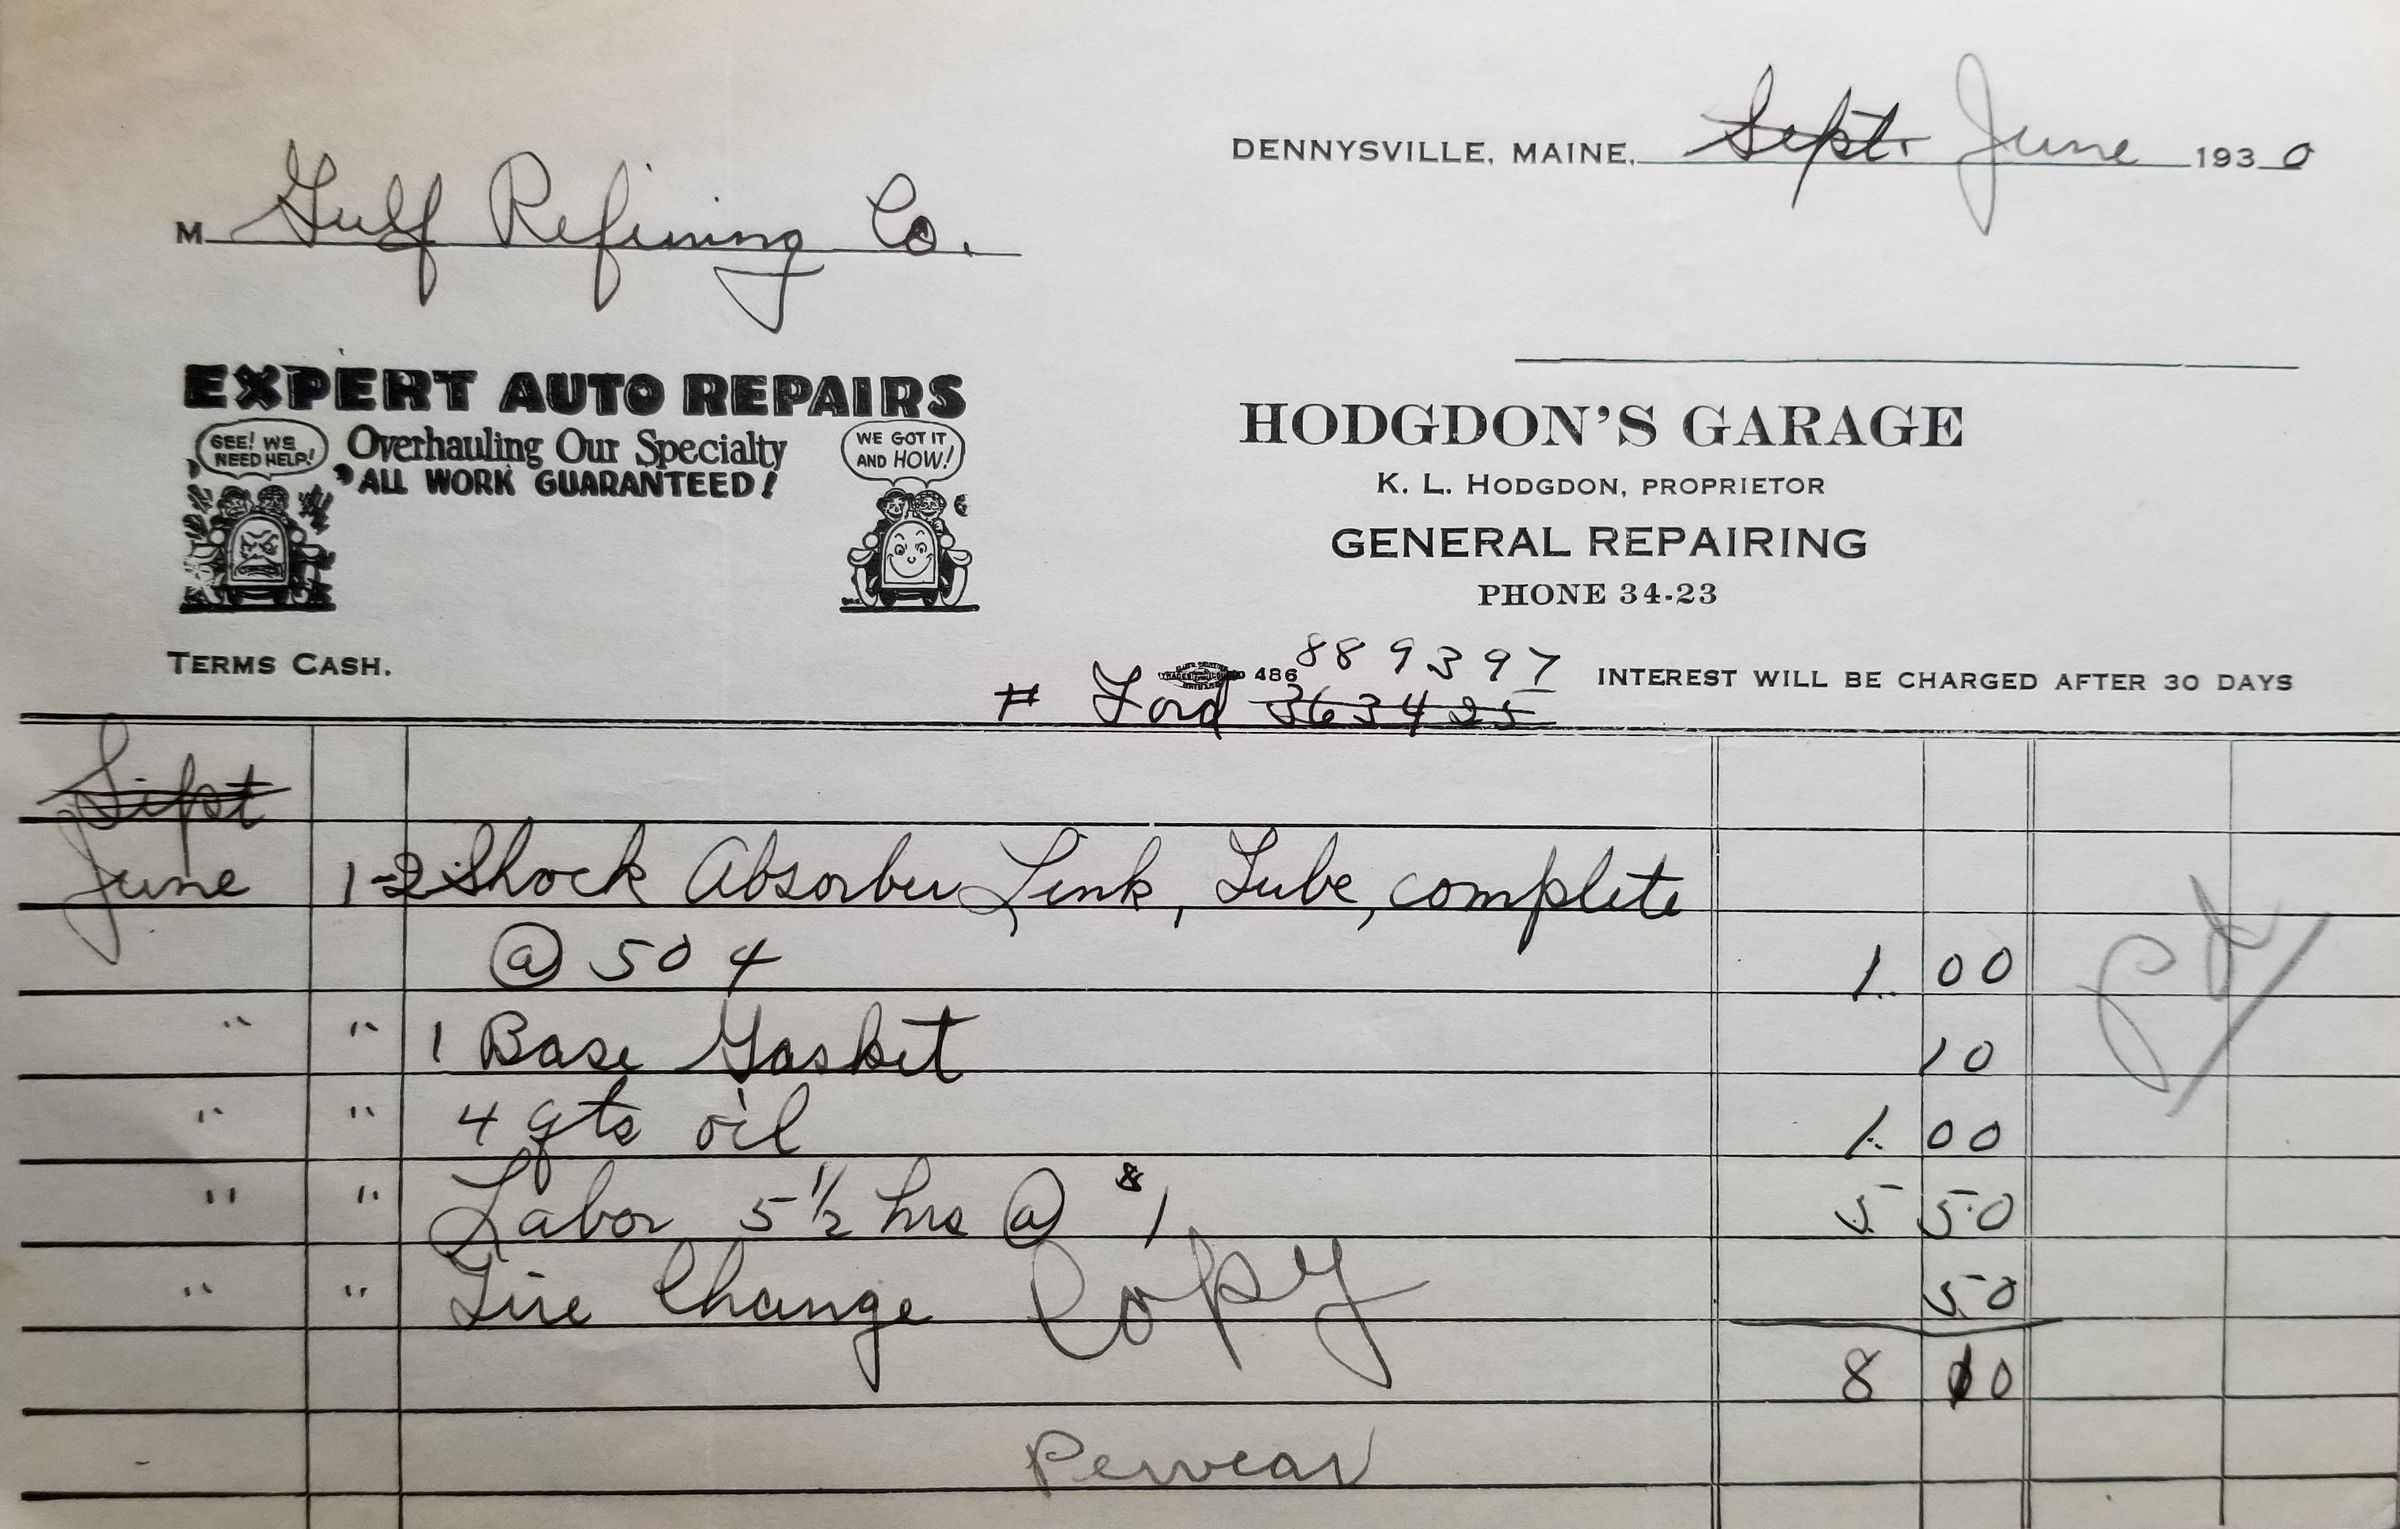 DENNYSVILLE, MAINE, Sept. June 1930
M Gulf Refining Co.
EXPERT AUTO REPAIRS
GEE! WE NEED HELP!
Overhauling Our Specialty
ALL WORK GUARANTEED!
WE GOT IT AND HOW!
HODGDON'S GARAGE
K. L. HODGDON, PROPRIETOR
GENERAL REPAIRING
PHONE 34-23
TERMS CASH.
486
889397
INTEREST WILL BE CHARGED AFTER 30 DAYS
# Ford 363425
Sept
June 1-2 Shock Absorber Link, Tube, complete
@ 50 ¢ 1.00
" " 1 Base Gasket 10
" " 4 qts oil 1.00
" " Labor 5 1/2 hrs @ $1 5.50
" " Tire Change 50
Copy
8 10